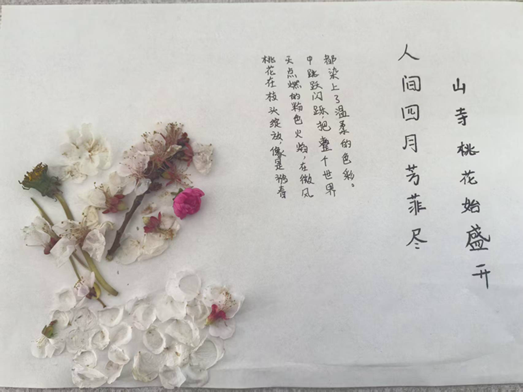 桃花在枝头绽放,像是被春
天点燃的粉色火焰,在微风
中跳跃闪烁,把整个世界
都染上了温柔的色彩。
人间四月芳菲尽
山寺桃花始盛开